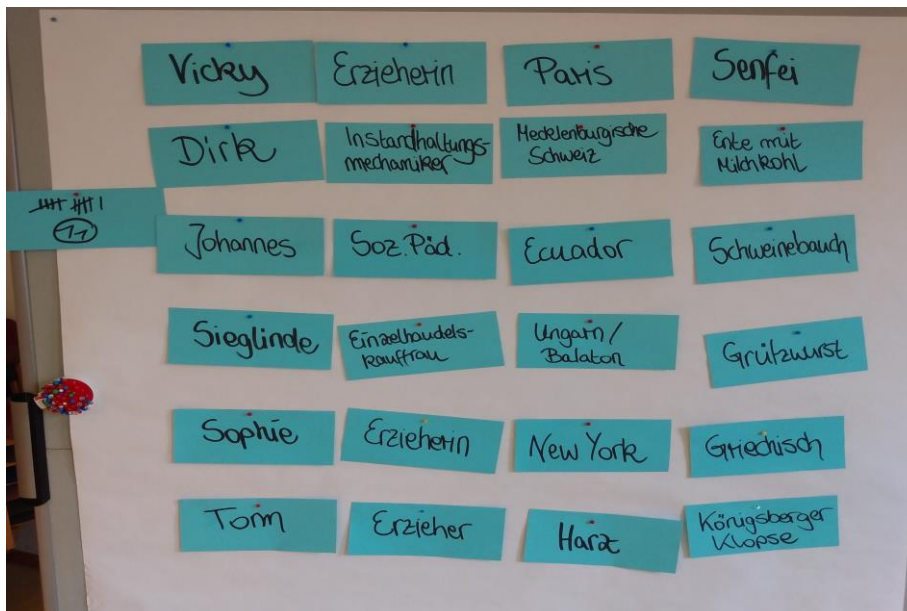 Vicky Erzieherin Paris Senfei
Dirk Instandhaltungs-
mechaniker Mecklenburgische
Schweiz Ente mit
Milchkohl
𝍸 𝍸 |
11
Johannes Soz. Päd. Ecuador Schweinebauch
Sieglinde Einzelhandels-
kauffrau Ungarn /
Balaton Grützwurst
Sophie Erzieherin New York Griechisch
Tom Erzieher Harz Königsberger
Klopse